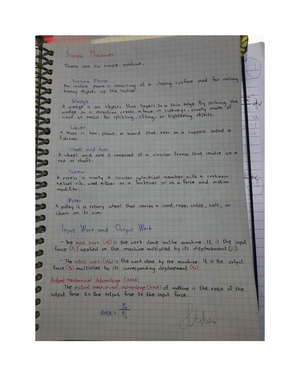 Simple Machines
There are six simple machines.
Incline Plane
An incline plane is consisting of a sloping surface used for raising
heavy objects up the incline.
Wedge
A wedge is an objects that tapers to a thin edge. By pushing the
wedge in a direction creates a force in sideways, usually made of
wood or metal for splitting, lifting, or tightening objects.
Lever
A lever is bar, plank, or board that rests on a support called a
fulcrum.
Wheel and Axle
A wheel and axle is composed of a circular frame that revolve on a
rod or shaft.
Screw
A screw is mostly a circular cylindrical member with a continuous
helical rib, used either as a fastener or as a force and motion
modifier.
Pulley
A pulley is a rotary wheel that carries a cord, rope, cable, belt, or
chain on its rim.
Input Work and Output Work
- The input work (Wi) is the work done on the machine. It is the input
force (Fi) applied on the machine multiplied by its displacement (si).
- The output work (Wo) is the work done by the machine. It is the output
force (Fo) multiplied by its corresponding displacement (so).
Actual Mechanical Advantage (AMA)
The actual mechanical advantage (AMA) of machine is the ratio of the
output force to the output force to the input force.
AMA = Fo
Fi